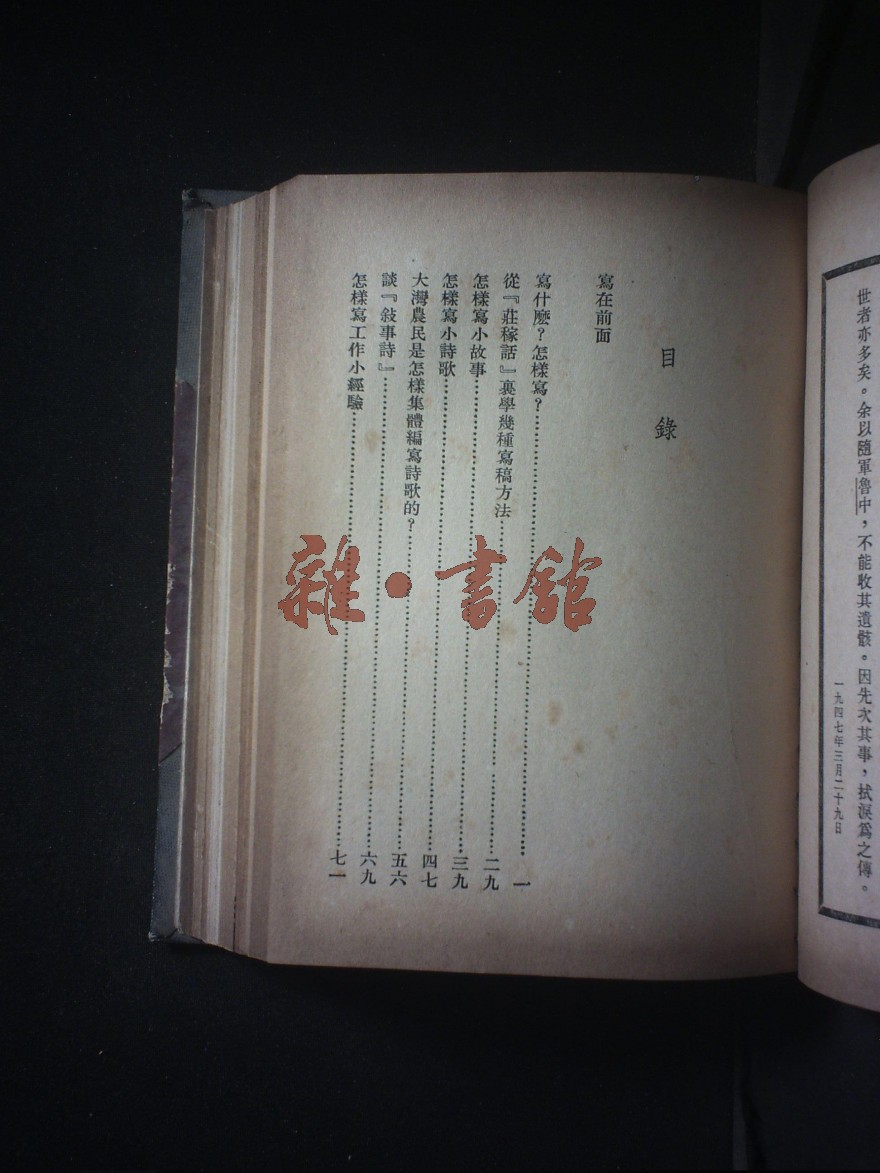 世者亦多矣。余以隨軍魯中，不能收其遺骸。因先次其事，拭淚爲之傳。
一九四七年三月二十九日
目錄
寫在前面
寫什麽？怎樣寫？…一
從『莊稼話』裏學幾種寫稿方法…二九
怎樣寫小故事…三九
怎樣寫小詩歌…四七
大灣農民是怎樣集體編寫詩歌的？…五六
談『敍事詩』…六九
怎樣寫工作小經驗…七一
雜·書館